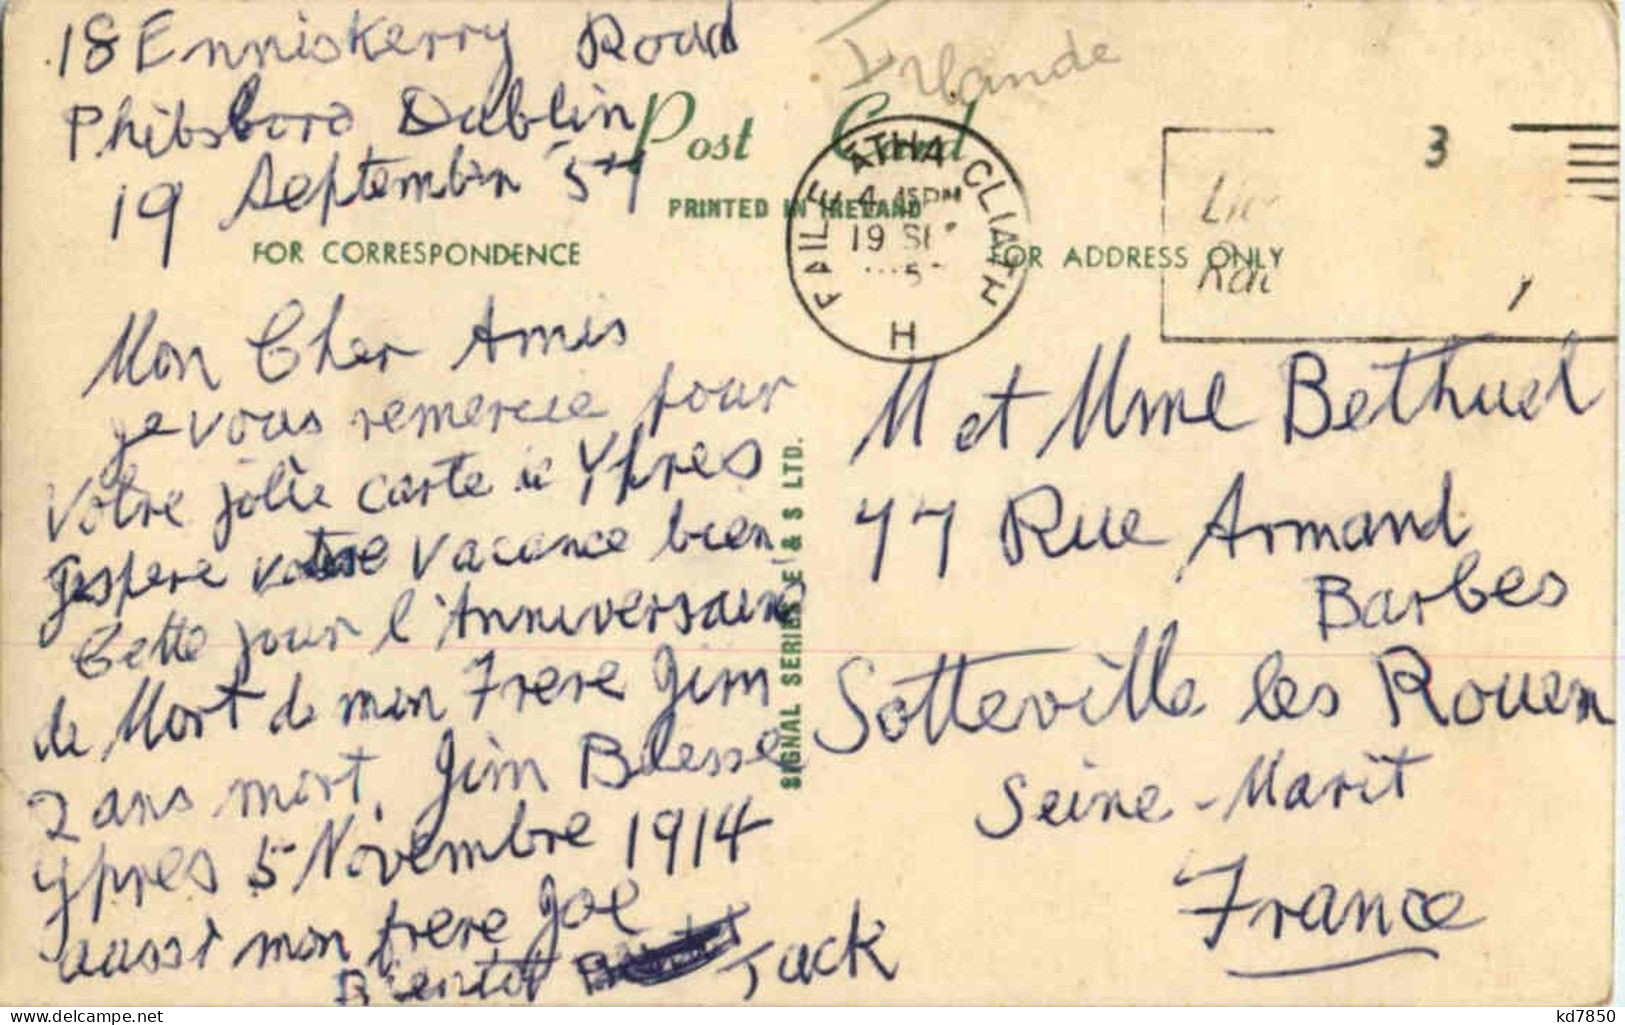 18 Enniskerry Road
Phibsboro Dublin
19 Septembre 54
Irlande
Post Card
PRINTED IN IRELAND
FOR CORRESPONDENCE
FOR ADDRESS ONLY
BAILE ÁTHA CLIATH
4 15PM
19 SE
5
H
3
Mon Cher Amis
je vous remercie pour
Votre jolie carte a Ypres
Jespere votre vacance bien
Cette jour l'Anniversaire
de Mort de mon Frere Jim
2 ans mort. Jim Blesse
Ypres 5 Novembre 1914
aussi mon frere Joe
Bientot Jack
SIGNAL SERIES E & S LTD.
M et Mme Bethuel
77 Rue Armand
Barbes
Sotteville les Rouen
Seine-Marit
France
kd7850